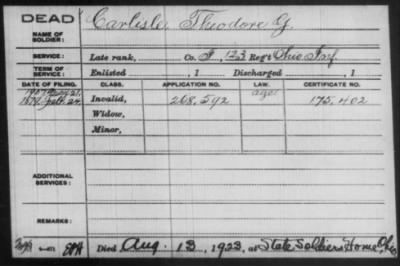 DEAD
Carlisle, Theodore G.
NAME OF SOLDIER:
SERVICE: Late rank, Co. F, 123 Reg't Ohio Inf.
TERM OF SERVICE: Enlisted , 1 Discharged , 1
DATE OF FILING. CLASS. APPLICATION NO. LAW. CERTIFICATE NO.
age
1879 Invalid, 268,592 175,402
Widow,
Minor,
ADDITIONAL SERVICES:
REMARKS:
Died Aug. 13, 1923, at State Soldiers Home, Ohio